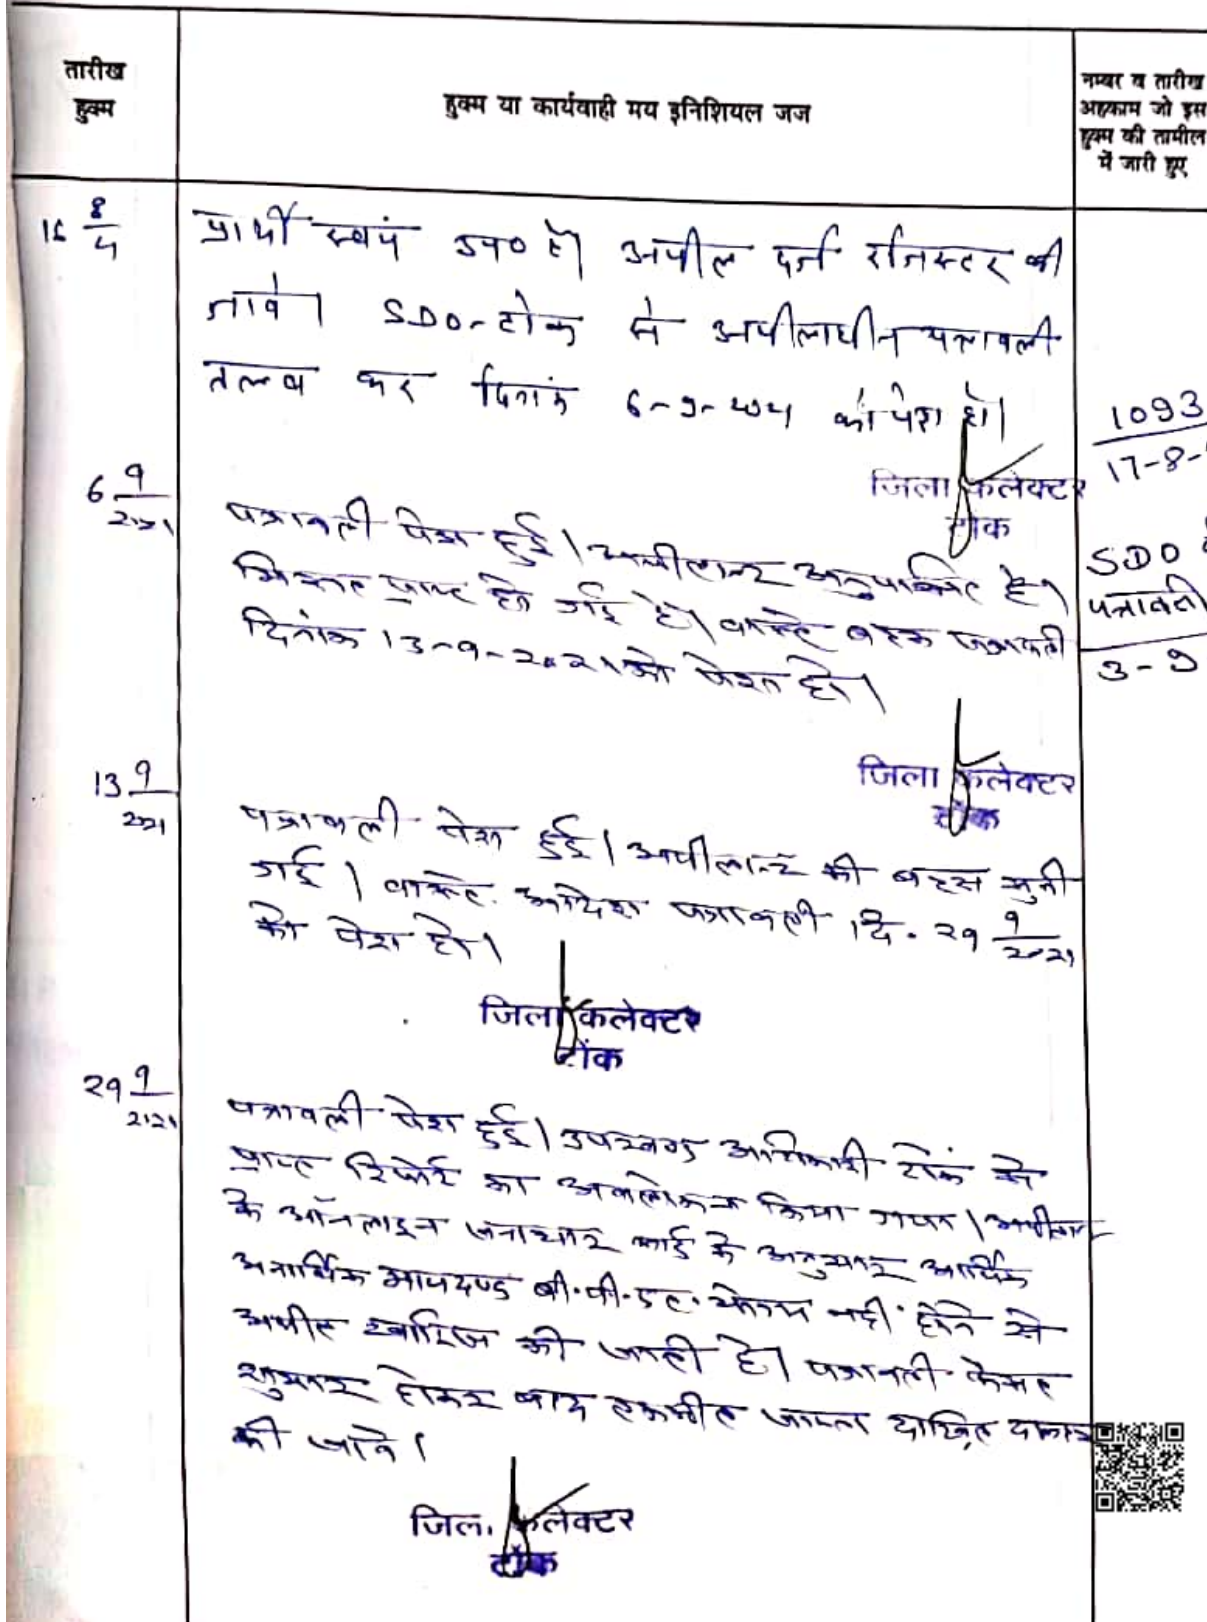 तारीख
हुक्म
हुक्म या कार्यवाही मय इनिशियल जज
नम्बर व तारीख
अहकाम जो इस
हुक्म की तामील
में जारी हुए
16 8/
प्रार्थी स्वयं उप० है। अपील दर्ज रजिस्टर की
जावे। SDO-टोंक से अपीलाधीन पत्रावली
तलब कर दिनांक 6-9-2021 को पेश हो।
1093
17-8-
जिला कलेक्टर
टोंक
6 9/2021
पत्रावली पेश हुई। अपीलान्ट अनुपस्थित है।
मिसल प्राप्त हो गई है। वास्ते बहस पत्रावली
दिनांक 13-9-2021 को पेश हो।
SDO
पत्रावली
3-9
जिला कलेक्टर
टोंक
13 9/2021
पत्रावली पेश हुई। अपीलान्ट की बहस सुनी
गई। वास्ते आदेश पत्रावली दि. 29 9/2021
को पेश हो।
जिला कलेक्टर
टोंक
29 9/2021
पत्रावली पेश हुई। उपखण्ड अधिकारी टोंक से
प्राप्त रिपोर्ट का अवलोकन किया गया। अपीलान्ट
के ऑनलाइन जनाधार कार्ड के अनुसार आर्थिक
मापदण्ड बी.पी.एल. नहीं होने से
अपील खारिज की जाती है। पत्रावली फैसल
शुमार होकर बाद तकमील जाब्ता दाखिल दफ्तर
की जावे।
जिला कलेक्टर
टोंक